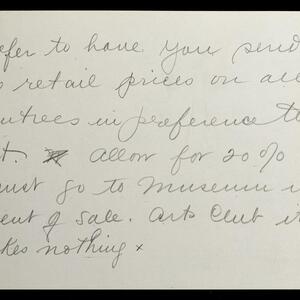 efer to have you send
s retail prices on all
ntrees in preference to
t. Allow for 20%
must go to Museum i
ent of sale. Arts Club i
kes nothing x